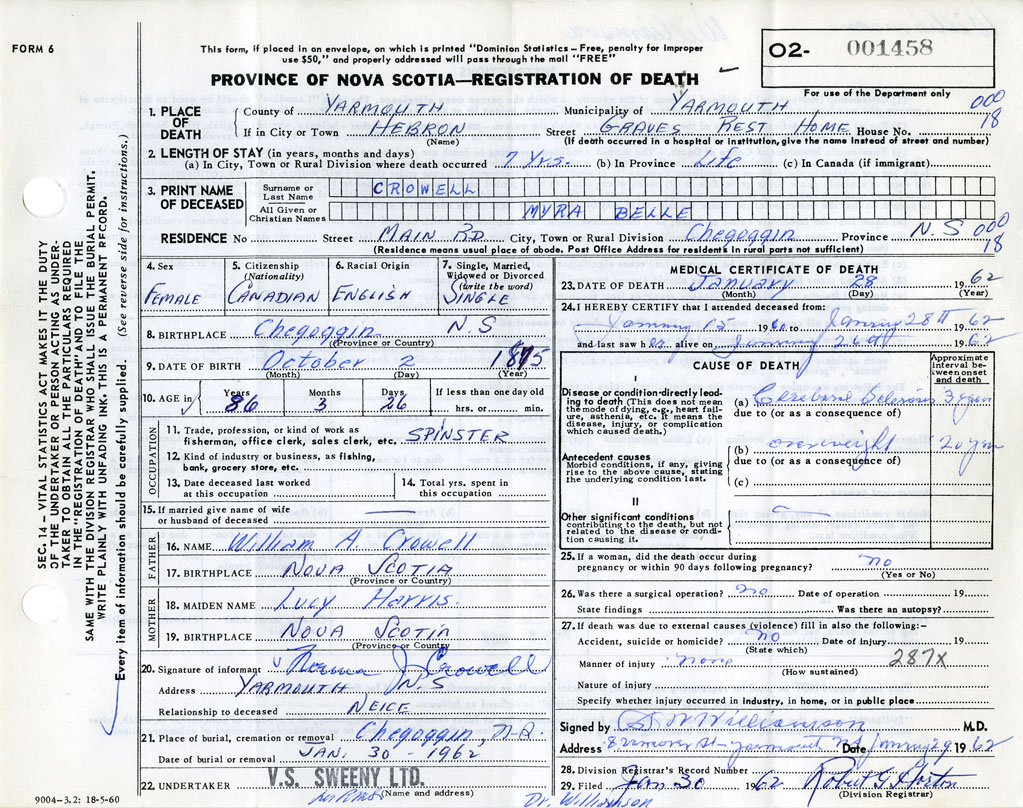 FORM 6
This form, if placed in an envelope, on which is printed "Dominion Statistics – Free, penalty for improper
use $50," and properly addressed will pass through the mail "FREE"
PROVINCE OF NOVA SCOTIA—REGISTRATION OF DEATH
O2- 001458
For use of the Department only
000
18
1. PLACE OF DEATH County of YARMOUTH Municipality of YARMOUTH
If in City or Town HEBRON Street GRAVES REST HOME House No.
(Name) (If death occurred in a hospital or institution, give the name instead of street and number)
2. LENGTH OF STAY (in years, months and days)
(a) In City, Town or Rural Division where death occurred 7 Yrs. (b) In Province Life (c) In Canada (if immigrant)
3. PRINT NAME OF DECEASED
Surname or Last Name CROWELL
All Given or Christian Names MYRA BELLE
RESIDENCE No Street MAIN RD City, Town or Rural Division Chegoggin Province N.S 000
18
(Residence means usual place of abode. Post Office Address for residents in rural parts not sufficient)
4. Sex FEMALE
5. Citizenship (Nationality) CANADIAN
6. Racial Origin ENGLISH
7. Single, Married, Widowed or Divorced (write the word) SINGLE
8. BIRTHPLACE Chegoggin N.S
(Province or Country)
9. DATE OF BIRTH October 2 1875
(Month) (Day) (Year)
10. AGE in Years 86 Months 3 Days 26 If less than one day old
hrs. or min.
OCCUPATION
11. Trade, profession, or kind of work as
fisherman, office clerk, sales clerk, etc. SPINSTER
12. Kind of industry or business, as fishing,
bank, grocery store, etc.
13. Date deceased last worked
at this occupation
14. Total yrs. spent in
this occupation
15. If married give name of wife
or husband of deceased —
FATHER
16. NAME William A. Crowell
17. BIRTHPLACE NOVA SCOTIA
(Province or Country)
MOTHER
18. MAIDEN NAME Lucy Harris.
19. BIRTHPLACE NOVA SCOTIA
(Province or Country)
20. Signature of informant J. Crowell
Address YARMOUTH N.S
Relationship to deceased NEICE
21. Place of burial, cremation or removal Chegoggin, N.S.
Date of burial or removal JAN. 30 - 1962
22. UNDERTAKER V.S. SWEENY LTD.
(Name and address)
9004-3.2: 18-5-60
MEDICAL CERTIFICATE OF DEATH
23. DATE OF DEATH January 28 1962
(Month) (Day) (Year)
24. I HEREBY CERTIFY that I attended deceased from:
January 15 19 to January 28th 1962
and last saw her alive on January 26th 1962
CAUSE OF DEATH
Approximate interval between onset and death
I
Disease or condition directly leading to death (This does not mean
the mode of dying, e.g., heart failure, asthenia, etc. It means the
disease, injury, or complication
which caused death.)
(a) 3 years
due to (or as a consequence of)
Antecedent causes
Morbid conditions, if any, giving
rise to the above cause, stating
the underlying condition last.
(b) overweight 20 yrs
due to (or as a consequence of)
(c)
II
Other significant conditions
contributing to the death, but not
related to the disease or condition causing it.
25. If a woman, did the death occur during
pregnancy or within 90 days following pregnancy? no
(Yes or No)
26. Was there a surgical operation? no Date of operation 19
State findings Was there an autopsy?
27. If death was due to external causes (violence) fill in also the following:–
Accident, suicide or homicide? no Date of injury 19
(State which)
Manner of injury none 287X
(How sustained)
Nature of injury
Specify whether injury occurred in industry, in home, or in public place
Signed by Williamson M.D.
Address Date January 29 1962
28. Division Registrar's Record Number
29. Filed Jan 30 1962 Robert G Horton
(Division Registrar)
Dr. Williamson
SEC. 14 – VITAL STATISTICS ACT MAKES IT THE DUTY
OF THE UNDERTAKER OR PERSON ACTING AS UNDERTAKER TO OBTAIN ALL THE PARTICULARS REQUIRED
IN THE "REGISTRATION OF DEATH" AND TO FILE THE
SAME WITH THE DIVISION REGISTRAR WHO SHALL ISSUE THE BURIAL PERMIT.
WRITE PLAINLY WITH UNFADING INK. THIS IS A PERMANENT RECORD.
Every item of information should be carefully supplied. (See reverse side for instructions.)